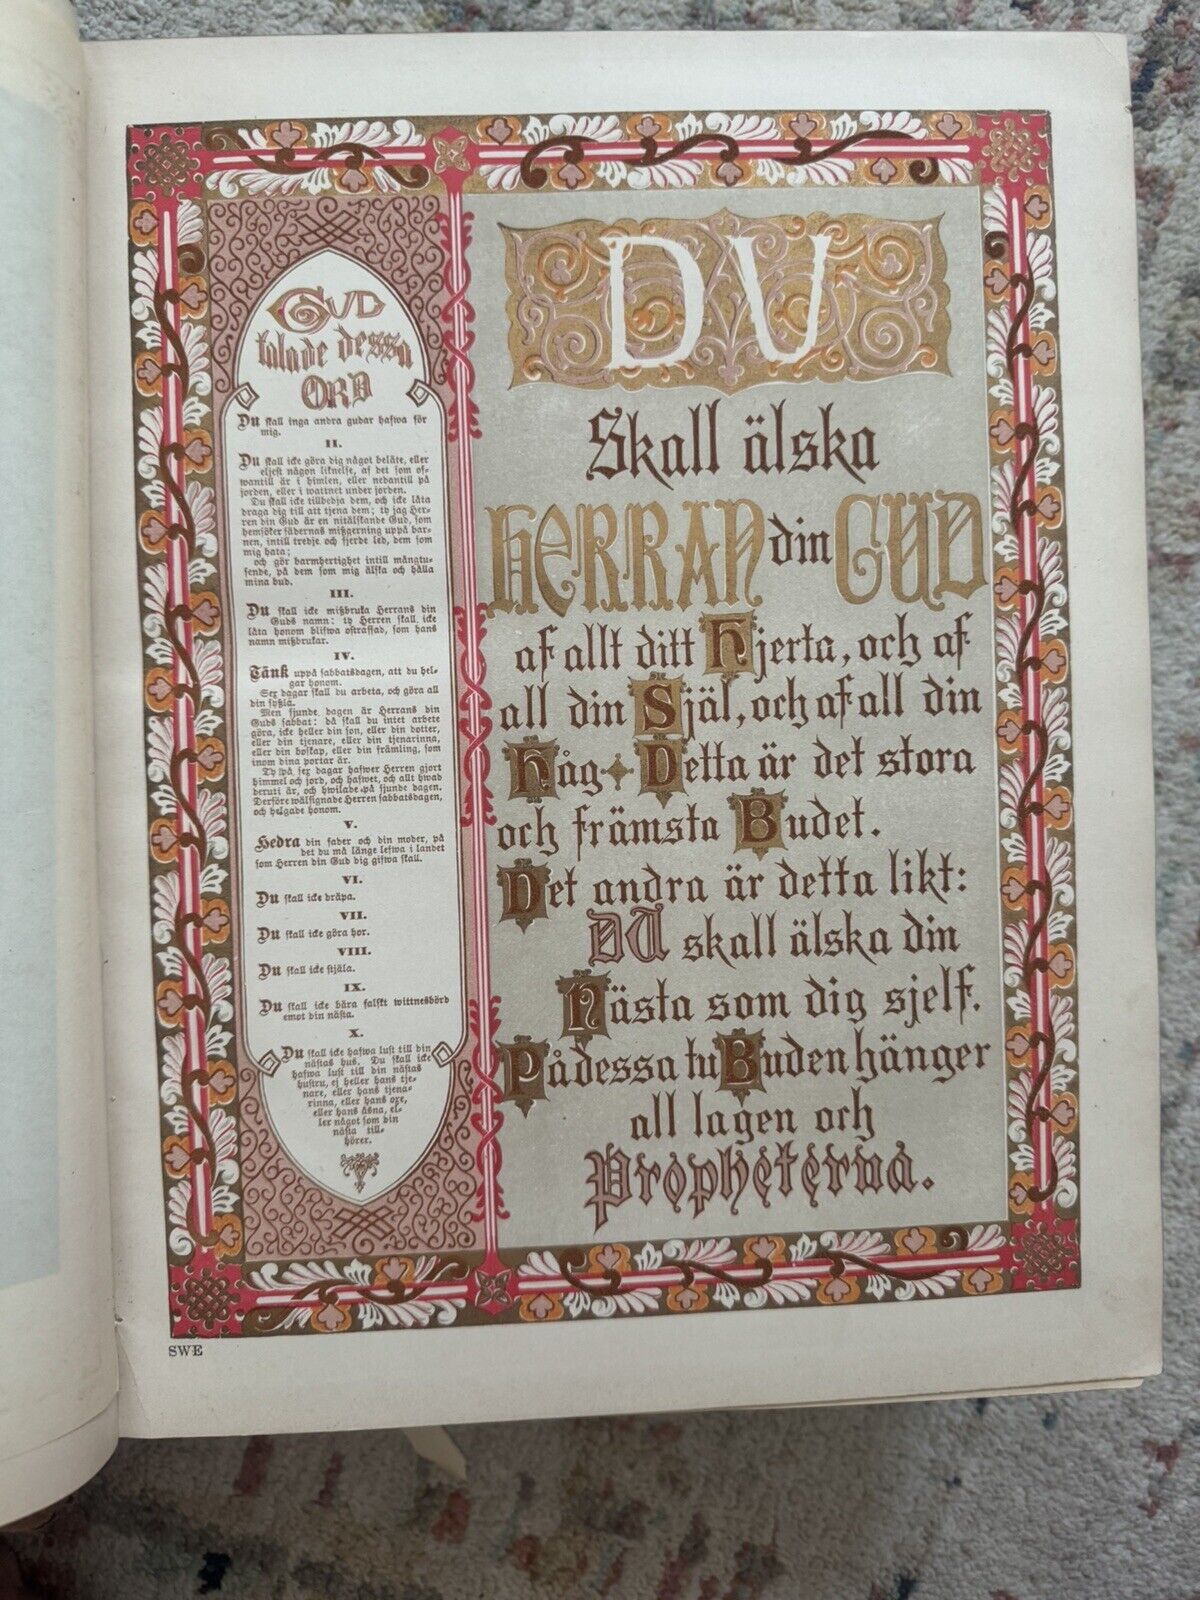 GUD
talade dessa
ORD
Du skall inga andra gudar hafwa för
mig.
II.
Du skall icke göra dig något beläte, eller
eljest någon liknelse, af det som of-
wantill är i himlen, eller nedantill på
jorden, eller i wattnet under jorden.
Du skall icke tillbedja dem, och icke låta
draga dig till att tjena dem; ty jag Her-
ren din Gud är en nitälskande Gud, som
hemsöker fädernas mißgerning uppå bar-
nen, intill tredje och fjerde led, dem som
mig hata;
och gör barmhertighet intill mångtu-
sende, på dem som mig älska och hålla
mina bud.
III.
Du skall icke mißbruka Herrans din
Guds namn: ty Herren skall icke
låta honom blifwa ostraffad, som hans
namn mißbrukar.
IV.
Tänk uppå sabbatsdagen, att du hel-
gar honom.
Sex dagar skall du arbeta, och göra all
din syßla.
Men sjunde dagen är Herrans din
Guds sabbat: då skall du intet arbete
göra, icke heller din son, eller din dotter,
eller din tjenare, eller din tjenarinna,
eller din boskap, eller din främling, som
inom dina portar är.
Ty på sex dagar hafwer Herren gjort
himmel och jord, och hafwet, och allt hwad
deruti är, och hwilade på sjunde dagen.
Derföre wälsignade Herren sabbatsdagen,
och helgade honom.
V.
Hedra din fader och din moder, på
det du må länge lefwa i landet
som Herren din Gud dig gifwa skall.
VI.
Du skall icke dräpa.
VII.
Du skall icke göra hor.
VIII.
Du skall icke stjäla.
IX.
Du skall icke bära falskt wittnesbörd
emot din nästa.
X.
Du skall icke hafwa lust till din
nästas hus. Du skall icke
hafwa lust till din nästas
hustru, ej heller hans tje-
nare, eller hans tjena-
rinna, eller hans oxe,
eller hans åsna, el-
ler något som din
nästa till-
hörer.
DU
Skall älska
HERRAN din GUD
af allt ditt Hjerta, och af
all din Själ, och af all din
Håg Detta är det stora
och främsta Budet.
Det andra är detta likt:
DU skall älska din
Nästa som dig sjelf.
På dessa tu Buden hänger
all lagen och
Propheterna.
SWE